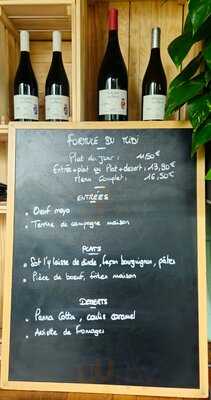 FORMULE DU MIDI
Plat du jour : 11,50€
Entrée+plat ou Plat+dessert : 13,90€
Menu Complet : 16,50€
ENTRÉES
• Oeuf mayo
• Terrine de campagne maison
PLATS
• Sot l'y laisse de dinde, façon bourguignon, pâtes
• Pièce du boeuf, frites maison
DESSERTS
• Panna Cotta, coulis caramel
• Assiette de Fromages